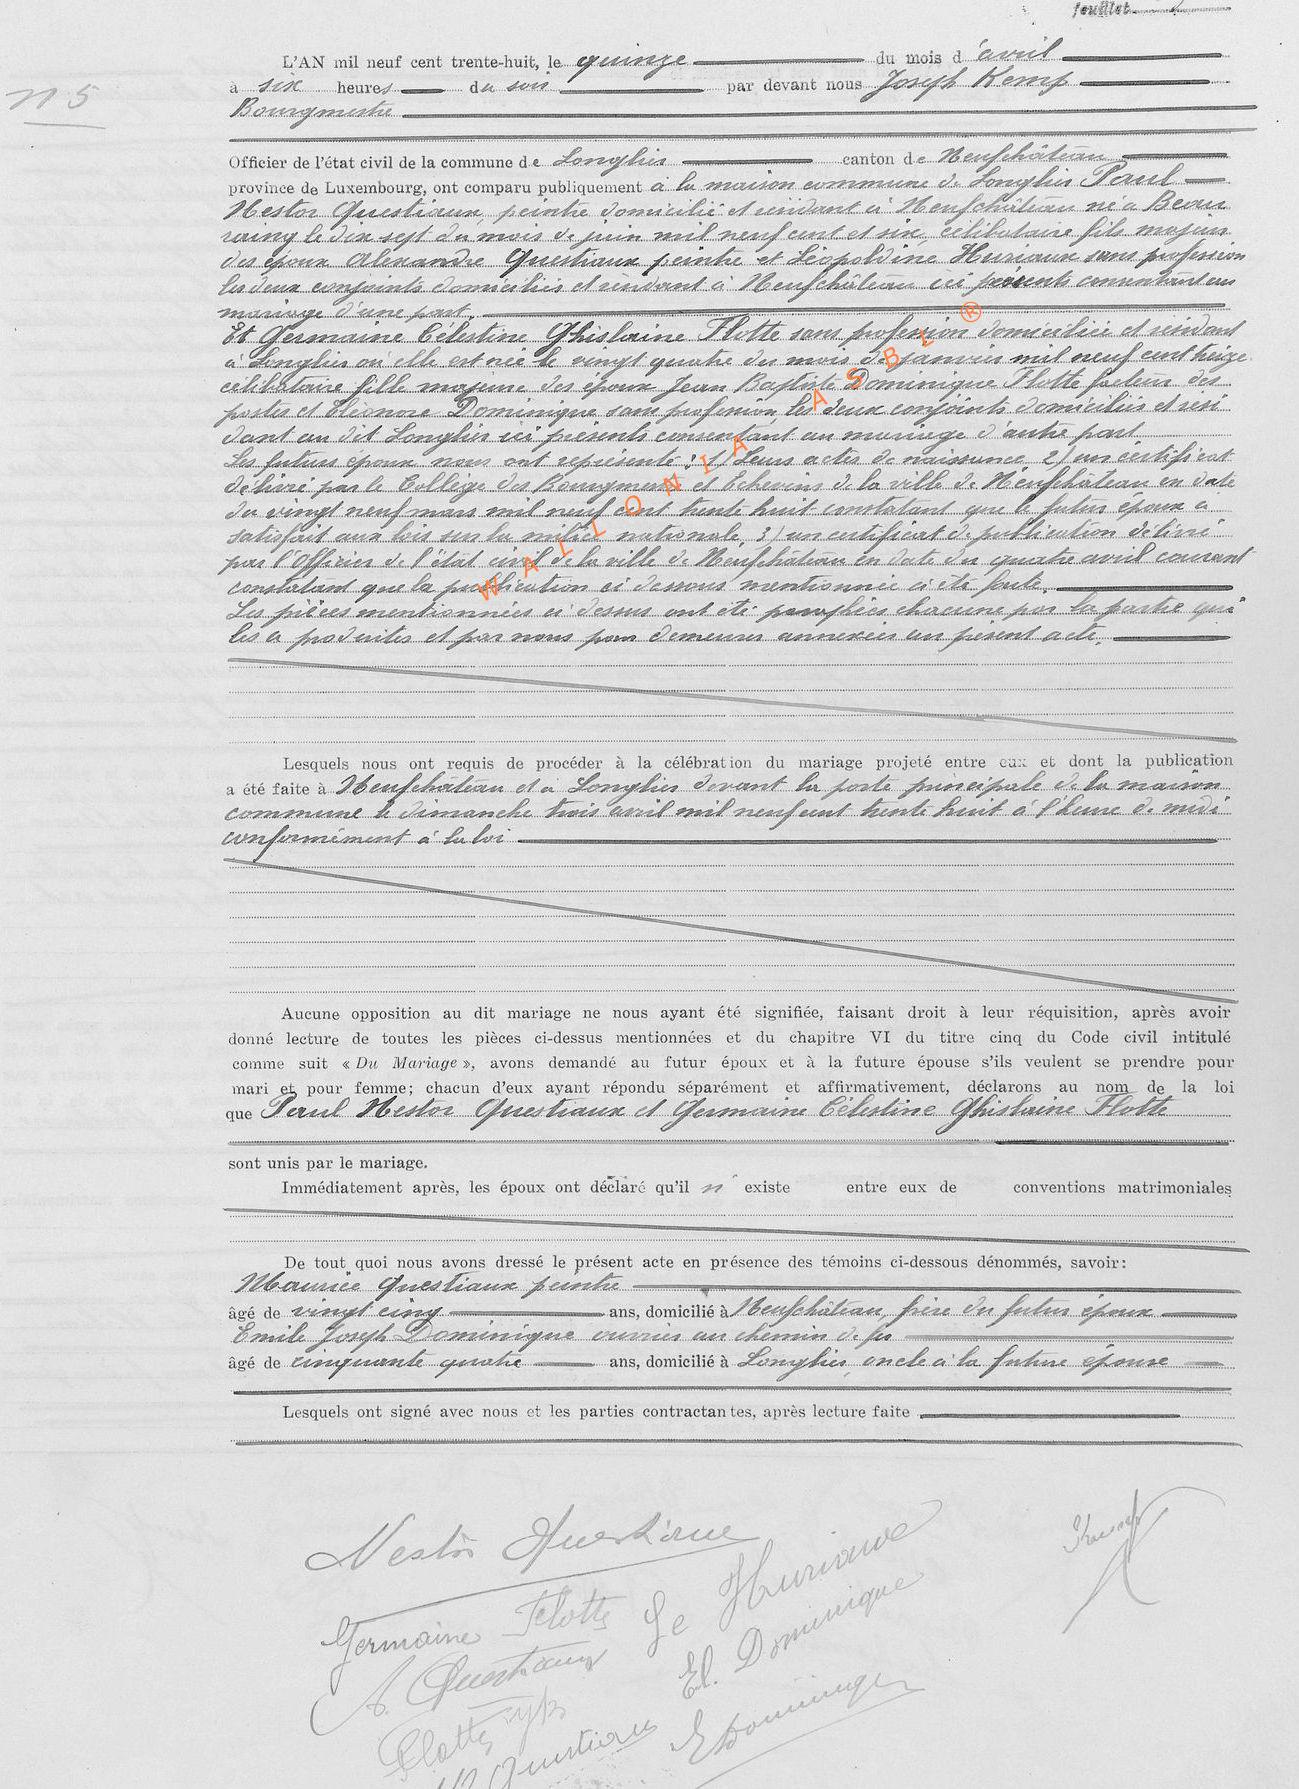 feuillet
L'AN mil neuf cent trente-huit, le quinze du mois d'avril
n 5
à six heures du soir par devant nous Joseph Kemp
Bourgmestre
Officier de l'état civil de la commune de Longlier canton de Neufchâteau
province de Luxembourg, ont comparu publiquement à la maison commune de Longlier Paul
Nestor Questiaux, peintre domicilié et résidant à Neufchâteau né à Beau
raing le dix sept du mois de juin mil neuf cent et six, célibataire fils majeur
des époux Alexandre Questiaux peintre et Léopoldine Huriaux sans profession
les deux conjoints domiciliés et résidant à Neufchâteau ici présents consentant au
mariage d'une part.
Et Germaine Célestine Ghislaine Flotte sans profession domiciliée et résidant
à Longlier où elle est née le vingt quatre du mois de janvier mil neuf cent treize
célibataire fille majeure des époux Jean Baptiste Dominique Flotte facteur des
postes et Eléonore Dominique sans profession, les deux conjoints domiciliés et rési
dant au dit Longlier ici présents consentant au mariage d'autre part
Les futurs époux nous ont représenté : 1) Leurs actes de naissance 2) un certificat
délivré par le Collège des Bourgmestre et Echevins de la ville de Neufchâteau en date
du vingt neuf mars mil neuf cent trente huit constatant que le futur époux a
satisfait aux lois sur la milice nationale, 3) un certificat de publication délivré
par l'Officier de l'état civil de la ville de Neufchâteau en date du quatre avril courant
constatant que la publication ci dessous mentionnée a été faite.
Les pièces mentionnées ci dessus ont été paraphées chacune par la partie qui
les a produites et par nous pour demeurer annexées au présent acte.
WALLONIA ASBL ®
Lesquels nous ont requis de procéder à la célébration du mariage projeté entre eux et dont la publication
a été faite à Neufchâteau et à Longlier devant la porte principale de la maison
commune le dimanche trois avril mil neuf cent trente huit à l'heure de midi
conformément à la loi
Aucune opposition au dit mariage ne nous ayant été signifiée, faisant droit à leur réquisition, après avoir
donné lecture de toutes les pièces ci-dessus mentionnées et du chapitre VI du titre cinq du Code civil intitulé
comme suit « Du Mariage », avons demandé au futur époux et à la future épouse s'ils veulent se prendre pour
mari et pour femme; chacun d'eux ayant répondu séparément et affirmativement, déclarons au nom de la loi
que Paul Nestor Questiaux et Germaine Célestine Ghislaine Flotte
sont unis par le mariage.
Immédiatement après, les époux ont déclaré qu'il n' existe entre eux de conventions matrimoniales
De tout quoi nous avons dressé le présent acte en présence des témoins ci-dessous dénommés, savoir:
Maurice Questiaux peintre
âgé de vingt cinq ans, domicilié à Neufchâteau, frère du futur époux
Emile Joseph Dominique ouvrier au chemin de fer
âgé de cinquante quatre ans, domicilié à Longlier, oncle à la future épouse
Lesquels ont signé avec nous et les parties contractantes, après lecture faite
Nestor Questiaux
Kemp
Germaine Flotte Le Huriaux
A. Questiaux El. Dominique
Flotte
Questiaux E Dominique